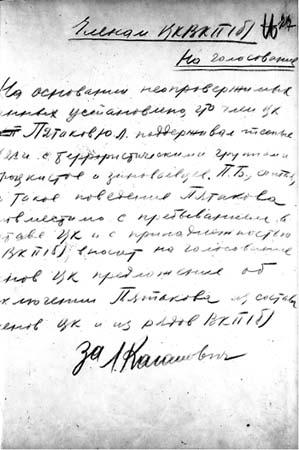 Членам ЦК ВКП(б)
На голосование
На основании неопровержимых
нных установлено, что член ЦК
Пятаков Ю.Л. поддерживал тесные
язи с террористическими группами
роцкистов и зиновьевцев. П.Б., считая,
о такое поведение Пятакова
овместимо с пребыванием в
ставе ЦК и с принадлежностью
ВКП(б) вносит на голосование
енов ЦК предложение об
ключении Пятакова из состава
енов ЦК и из рядов ВКП(б)
За Л. Каганович